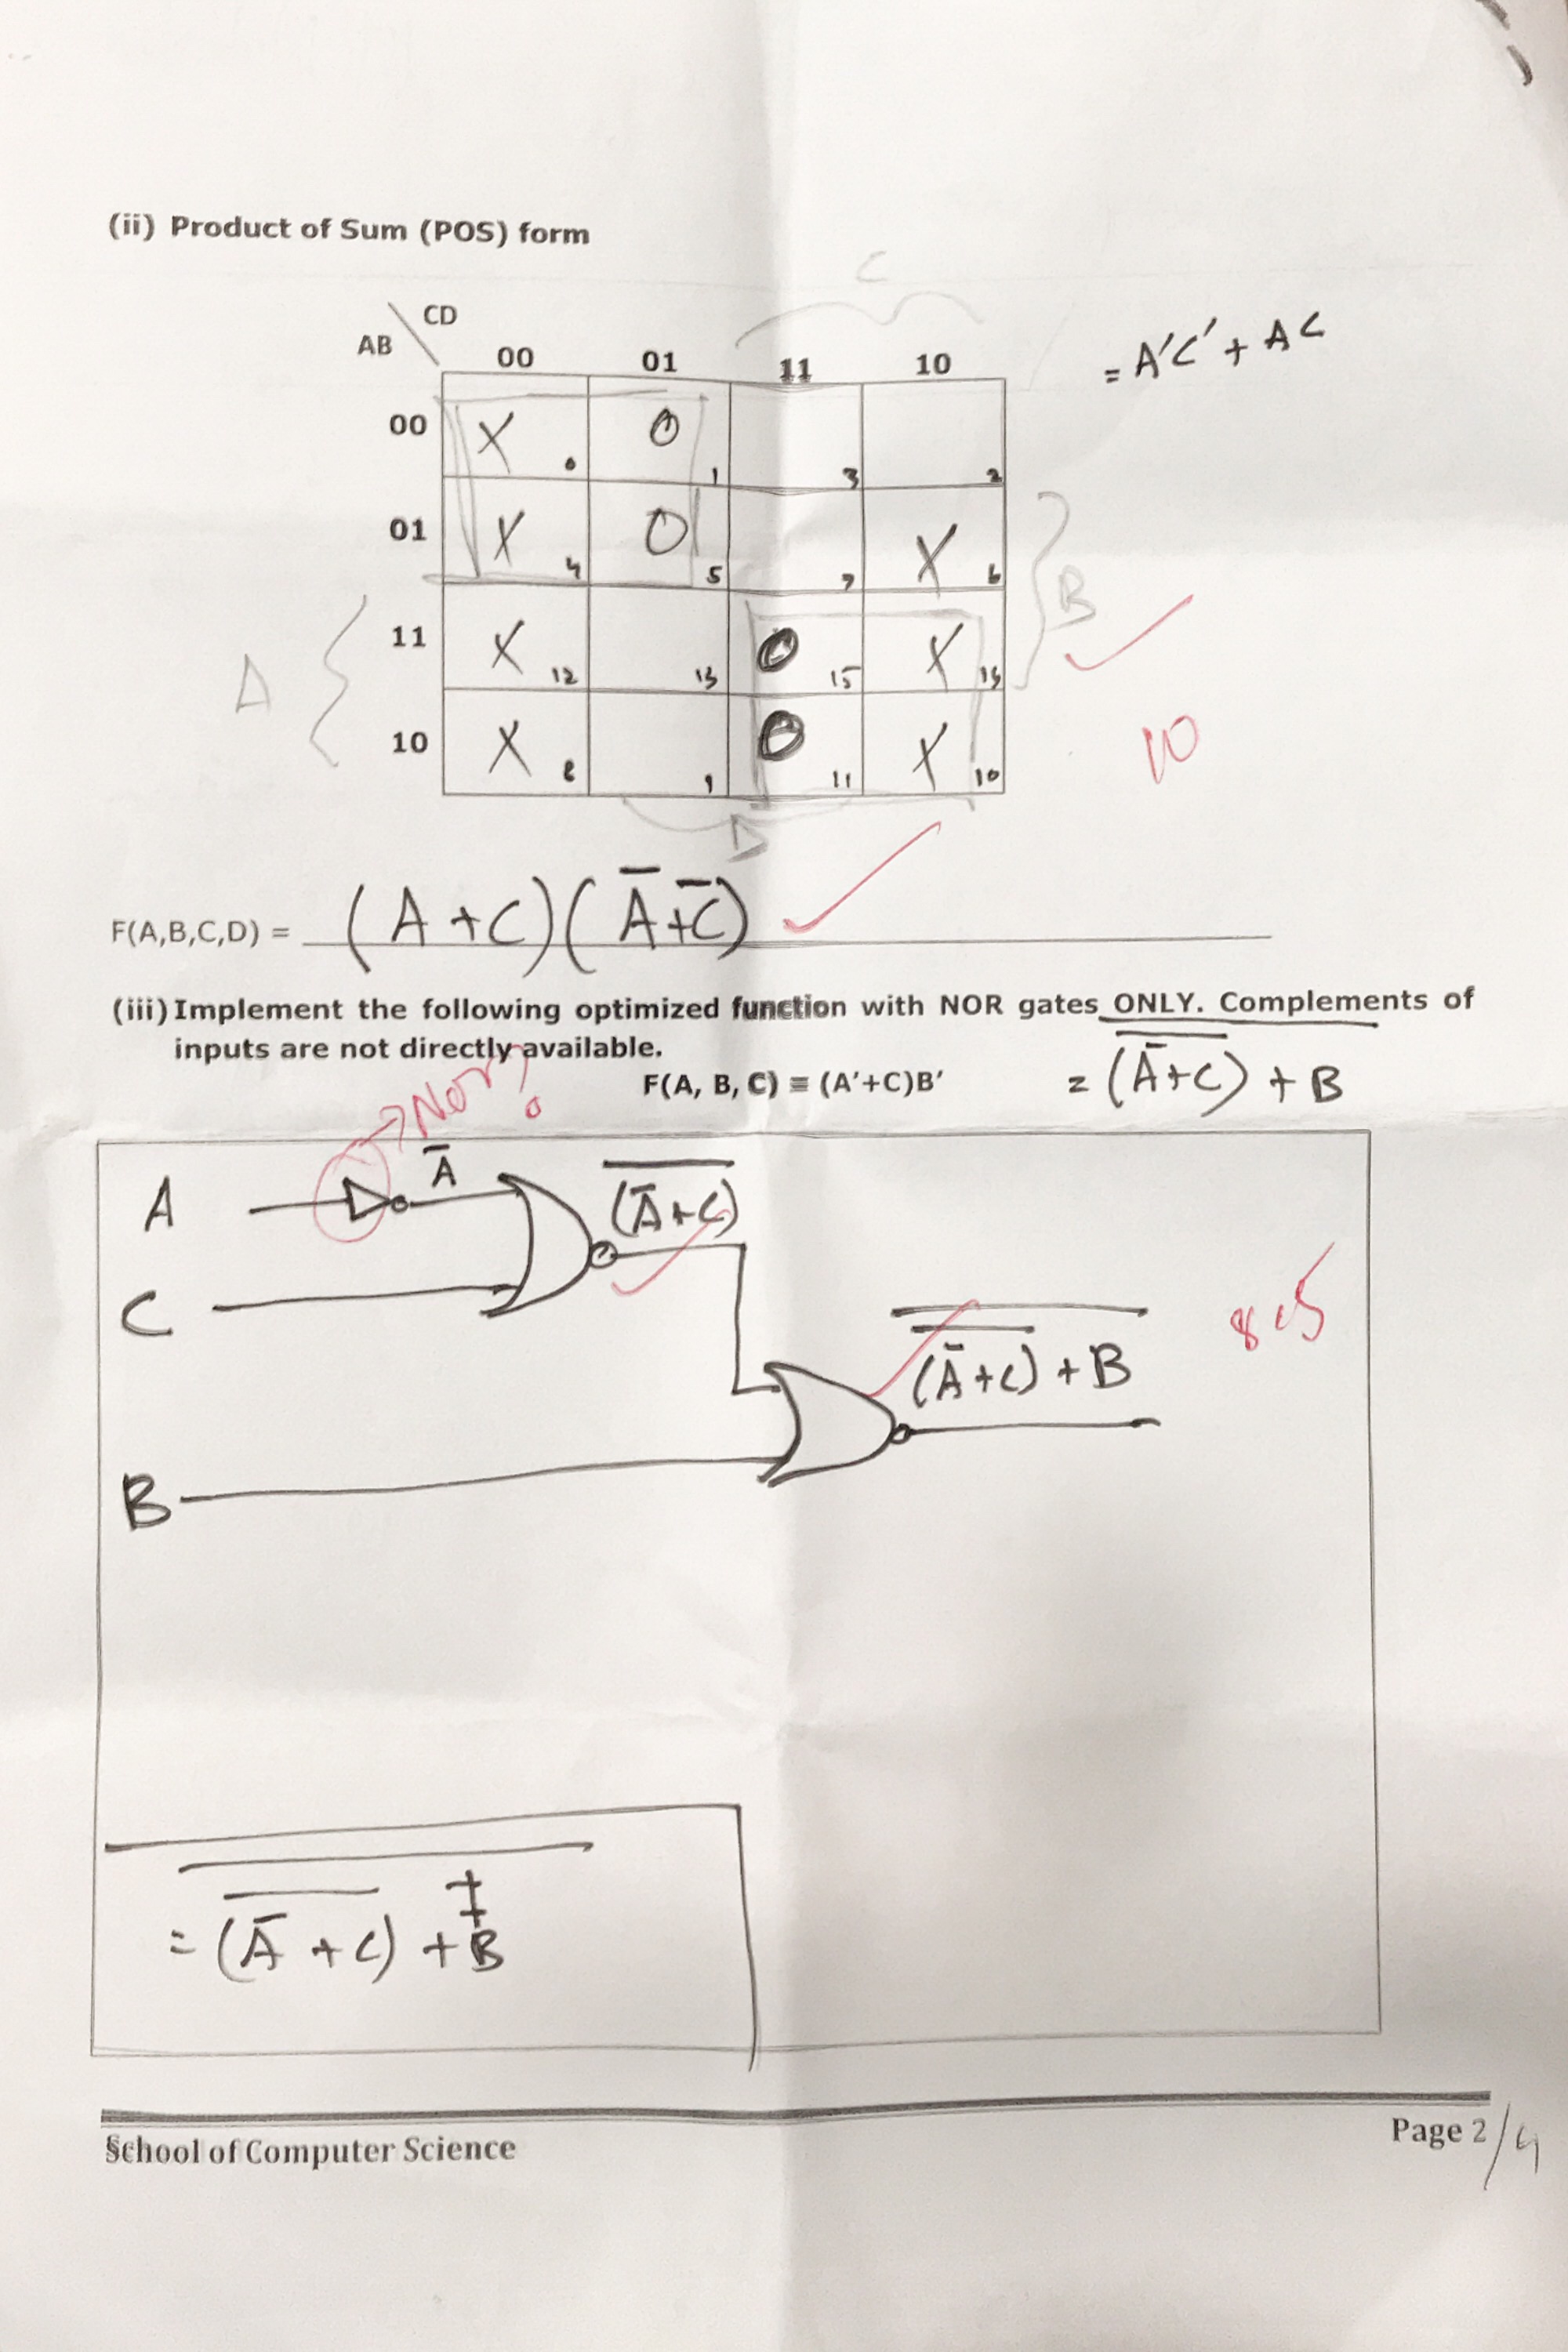 (ii) Product of Sum (POS) form
C
CD
AB
00 01 11 10
= A'C' + AC
00 X 0 O 1 3 2
01 X 4 O 5 7 X 6
B
11 X 12 13 O 15 X 14
A
10 X 8 9 O 11 X 10
10
D
F(A,B,C,D) = (A + C)(A̅+C̅)
(iii) Implement the following optimized function with NOR gates ONLY. Complements of
inputs are not directly available.
F(A, B, C) ≡ (A′+C)B′
= (A̅+C) + B
→ Nor?
A
A̅
(A̅+C)
C
8.5
(A̅+C) + B
B
= (A̅ + C) + B
School of Computer Science
Page 2/4